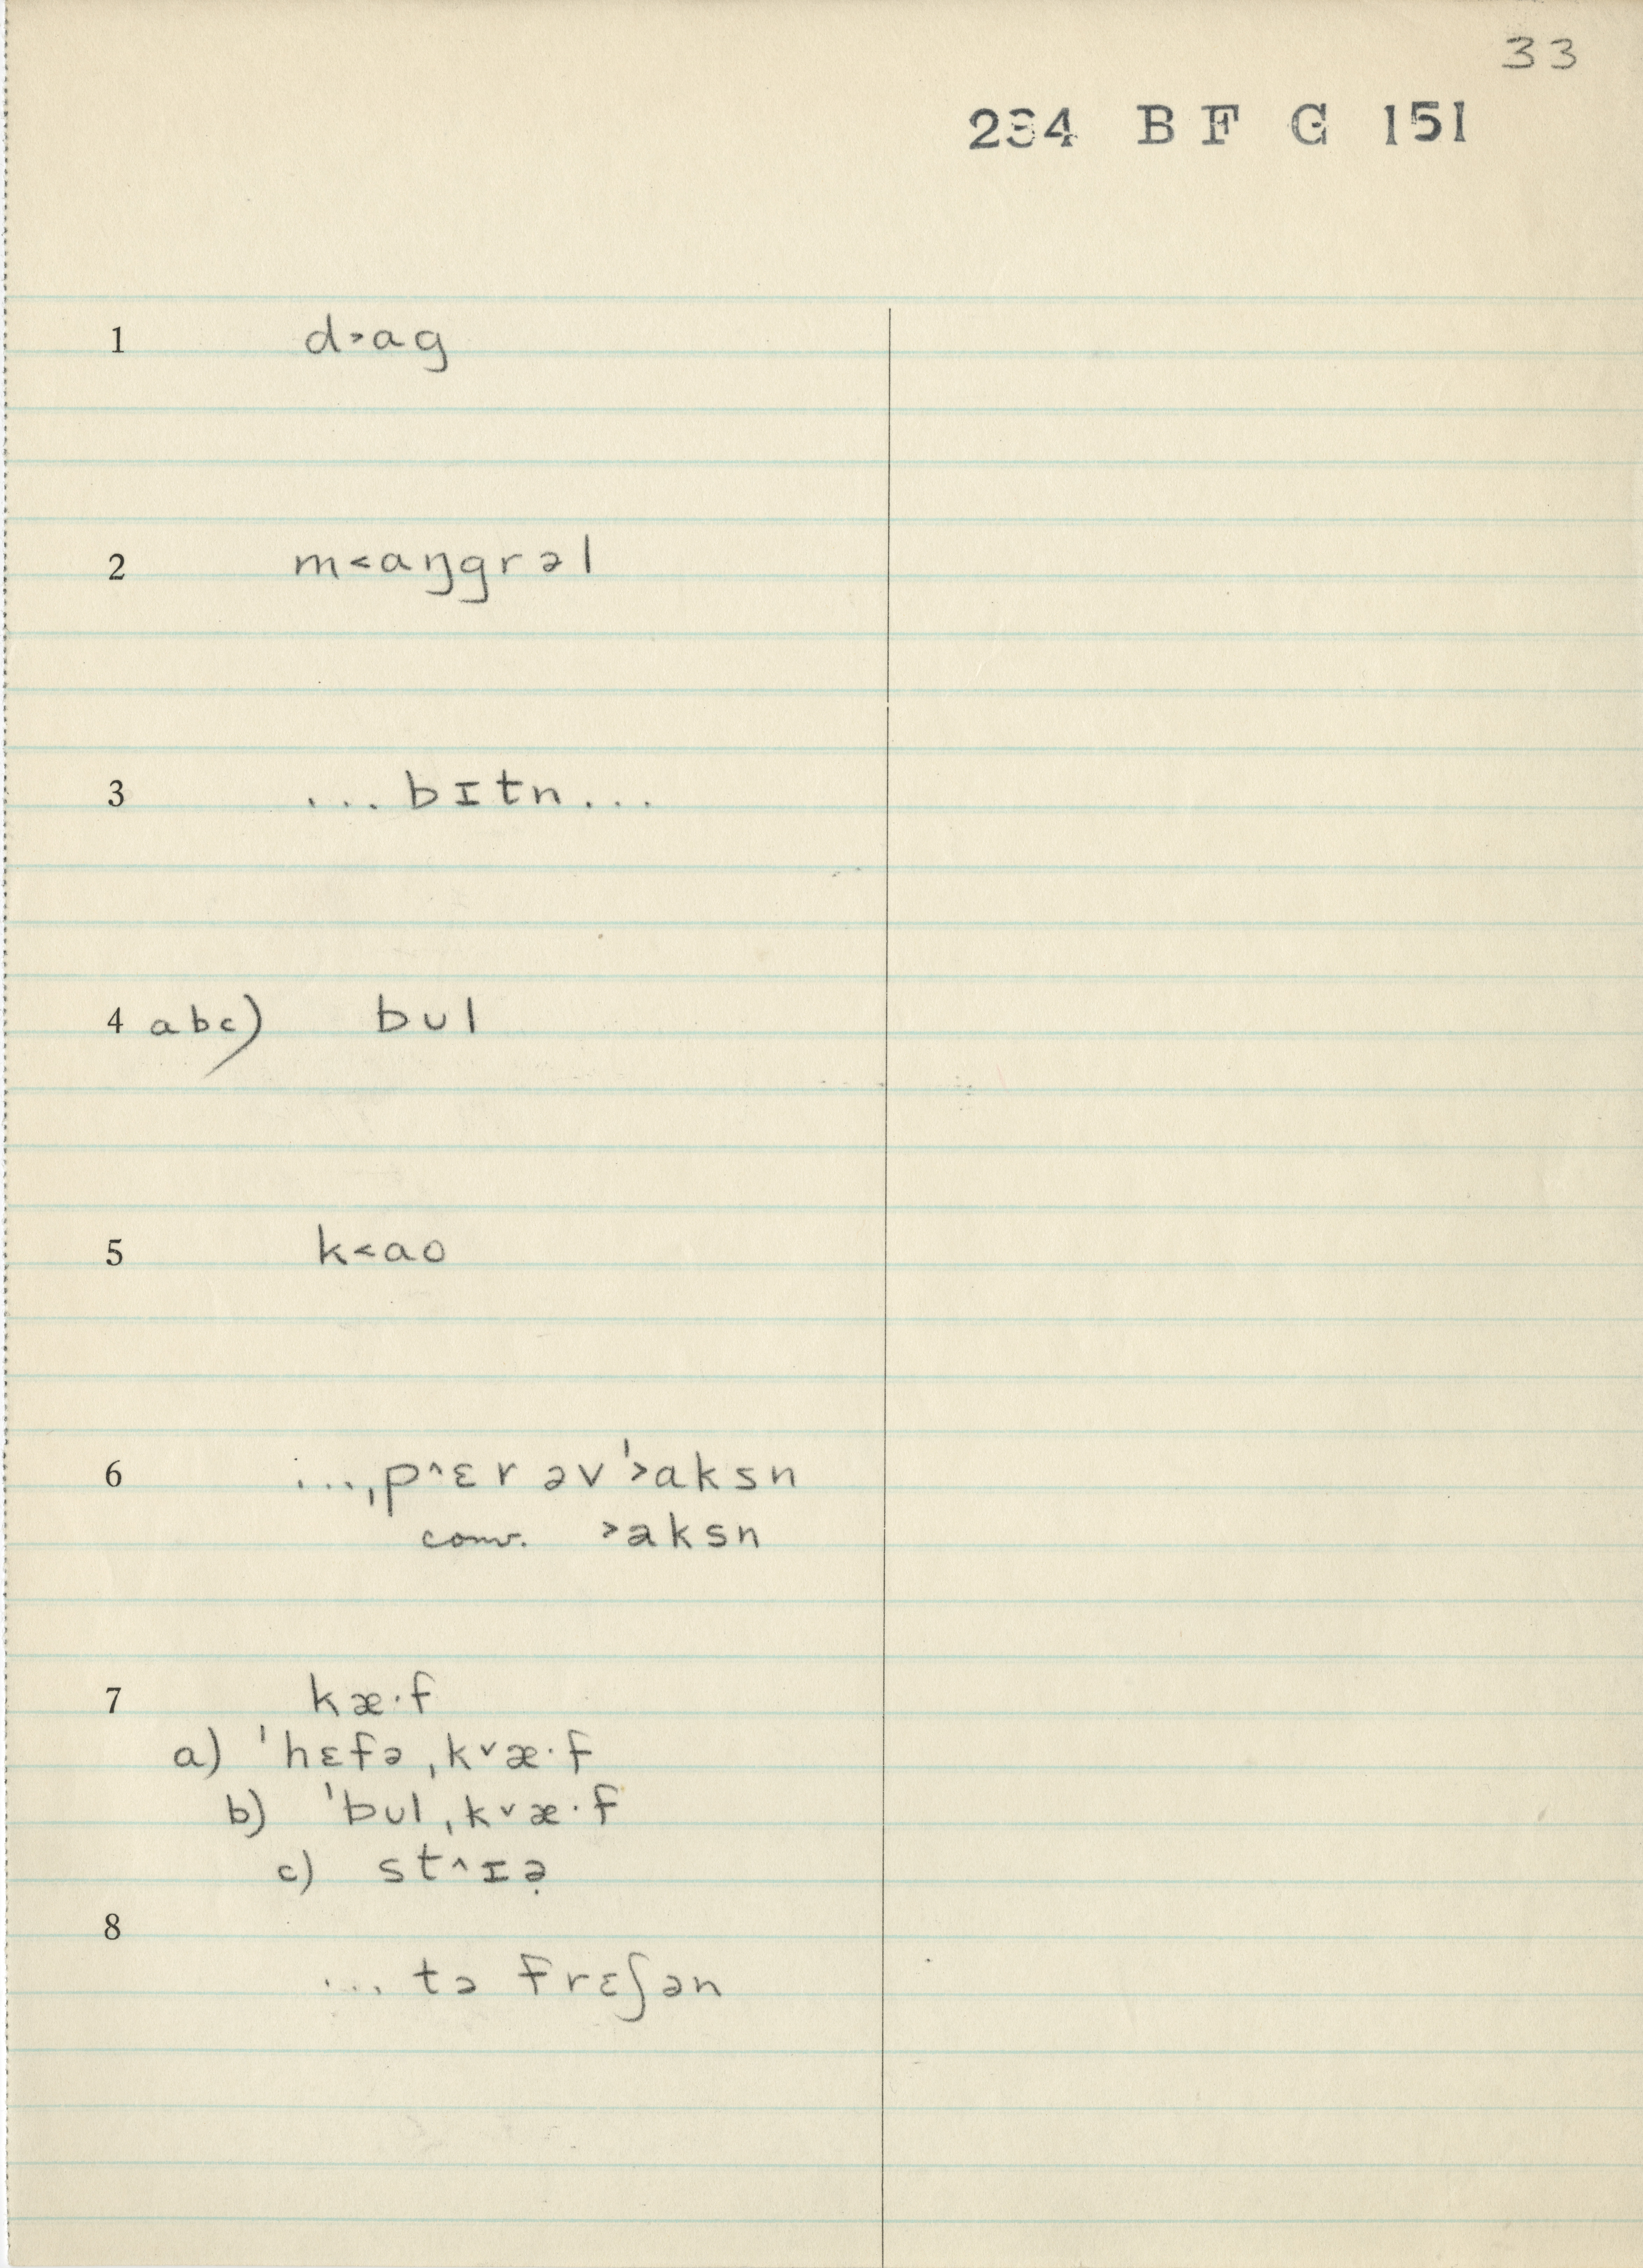 33
234 B F G 151
1 d˃ag
2 m˂aŋgrəl
3 ...bɪtn...
4 abc) bul
5 k˂ao
6 ...ˌp˄ɛr əv ˈ˃aksn
conv. ˃aksn
7 kæ·f
a) ˈhɛfə ˌk˅æ·f
b) ˈbul ˌk˅æ·f
c) st˄ɪə̣
8
... tə frɛʃən